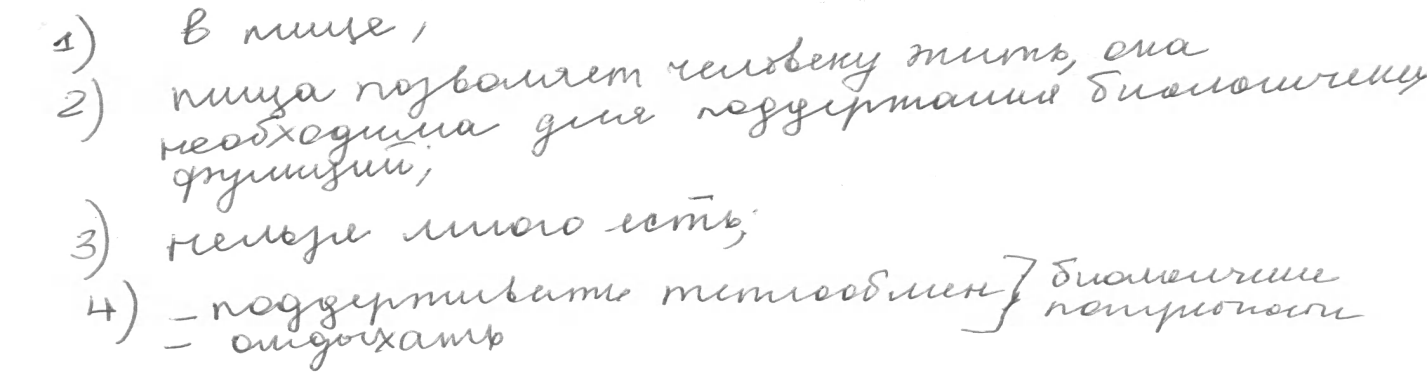 1) в пище,
2) пища позволяет человеку жить, она
необходима для поддержания биологических
функций;
3) нельзя много есть;
4) - поддерживать теплообмен } биологичские
- отдыхать
потребности